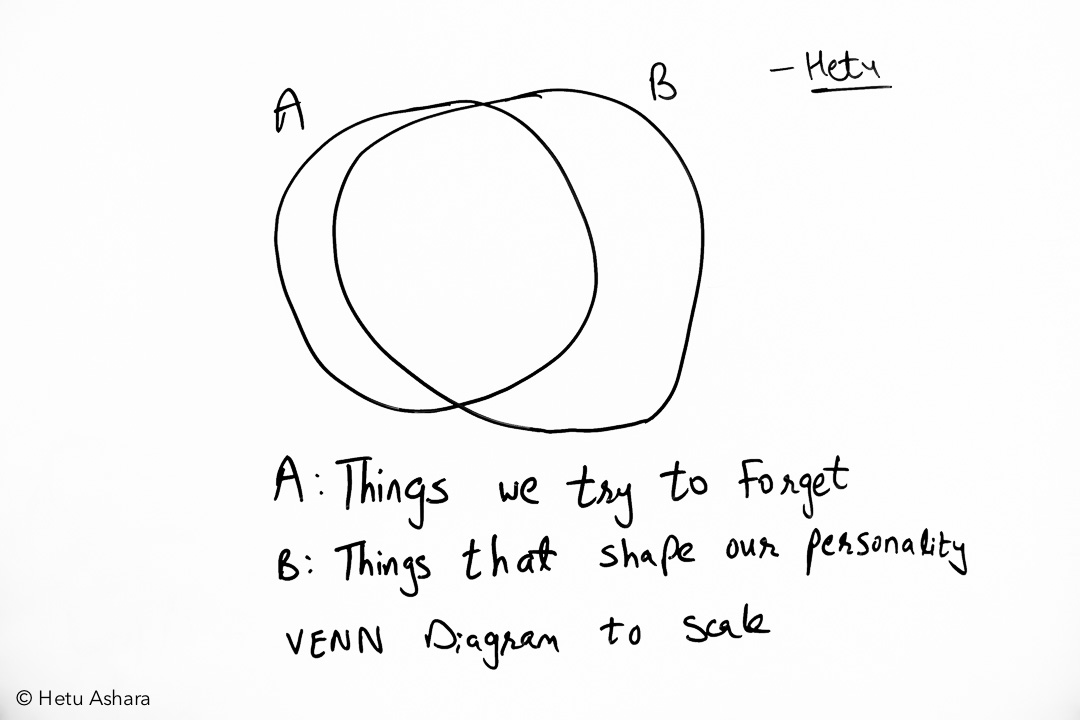 A
B
- Hetu
A: Things we try to Forget
B: Things that shape our personality
VENN Diagram to Scale
© Hetu Ashara